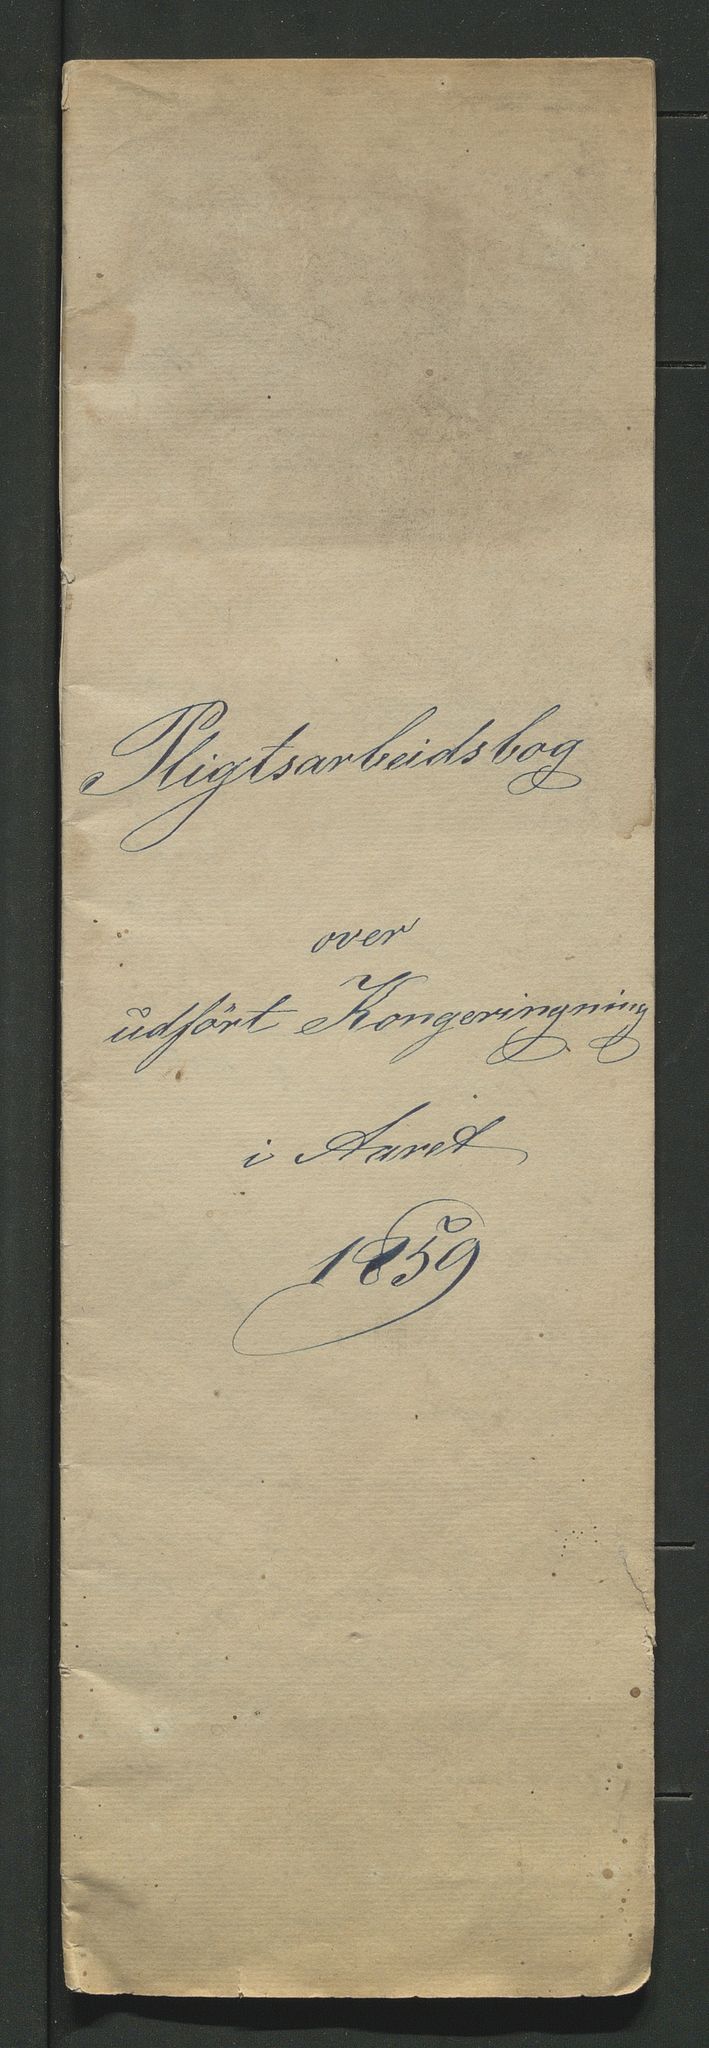 Pligtsarbeidsbog
over
udført Kongeringning
i Aaret
1859